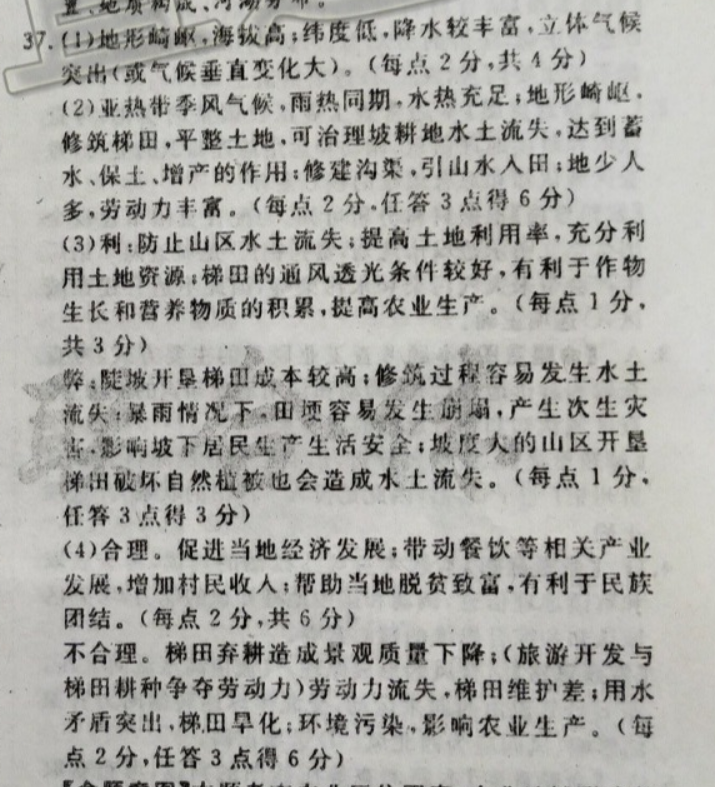 置、地质构成、河湖分布。
37.(1)地形崎岖,海拔高;纬度低,降水较丰富,立体气候
突出(或气候垂直变化大)。(每点2分,共4分)
(2)亚热带季风气候,雨热同期,水热充足;地形崎岖,
修筑梯田,平整土地,可治理坡耕地水土流失,达到蓄
水、保土、增产的作用;修建沟渠,引山水入田;地少人
多,劳动力丰富。(每点2分,任答3点得6分)
(3)利:防止山区水土流失;提高土地利用率,充分利
用土地资源;梯田的通风透光条件较好,有利于作物
生长和营养物质的积累,提高农业生产。(每点1分,
共3分)
弊:陡坡开垦梯田成本较高;修筑过程容易发生水土
流失;暴雨情况下,田埂容易发生崩塌,产生次生灾
害,影响坡下居民生产生活安全;坡度大的山区开垦
梯田破坏自然植被也会造成水土流失。(每点1分,
任答3点得3分)
(4)合理。促进当地经济发展;带动餐饮等相关产业
发展,增加村民收入;帮助当地脱贫致富,有利于民族
团结。(每点2分,共6分)
不合理。梯田弃耕造成景观质量下降;(旅游开发与
梯田耕种争夺劳动力)劳动力流失,梯田维护差;用水
矛盾突出,梯田旱化;环境污染,影响农业生产。(每
点2分,任答3点得6分)